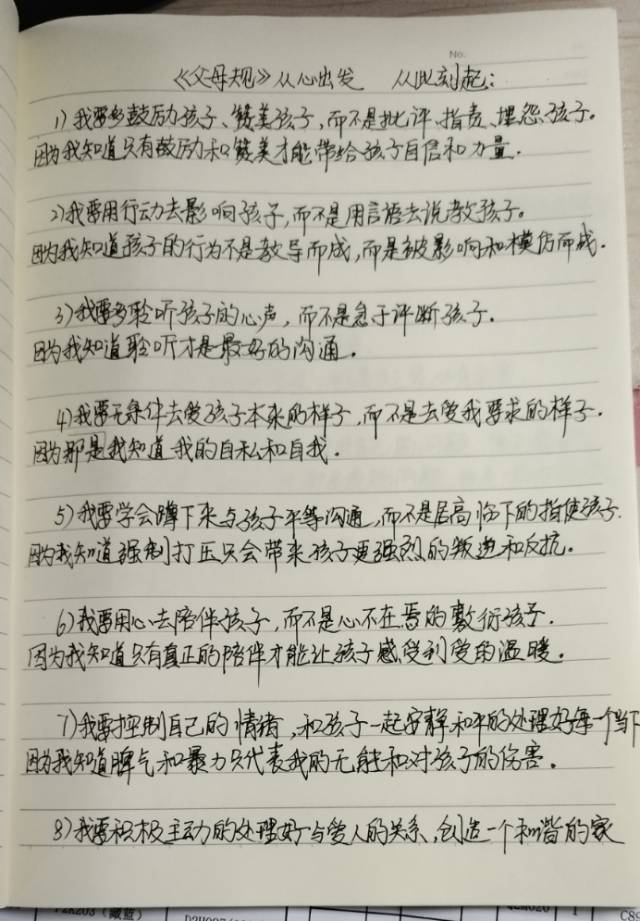 No.
《父母规》从心出发 从此刻起:
1)我要多鼓励孩子、赞美孩子,而不是批评、指责、埋怨孩子。
因为我知道只有鼓励和赞美才能带给孩子自信和力量.
2)我要用行动去影响孩子,而不是用言语去说教孩子。
因为我知道孩子的行为不是教导而成,而是被影响和模仿而成.
3)我要多聆听孩子的心声,而不是急于评断孩子.
因为我知道聆听才是最好的沟通.
4)我要无条件去爱孩子本来的样子,而不是去爱我要求的样子.
因为那是我知道我的自私和自我.
5)我要学会蹲下来与孩子平等沟通,而不是居高临下的指使孩子.
因为我知道强制打压只会带来孩子更强烈的叛逆和反抗。
6)我要用心去陪伴孩子,而不是心不在焉的敷衍孩子.
因为我知道只有真正的陪伴才能让孩子感受到爱的温暖。
7)我要控制自己的情绪,和孩子一起安静和平的处理好每一个当下
因为我知道脾气和暴力只代表我的无能和对孩子的伤害。
8)我要积极主动的处理好与爱人的关系,创造一个和谐的家